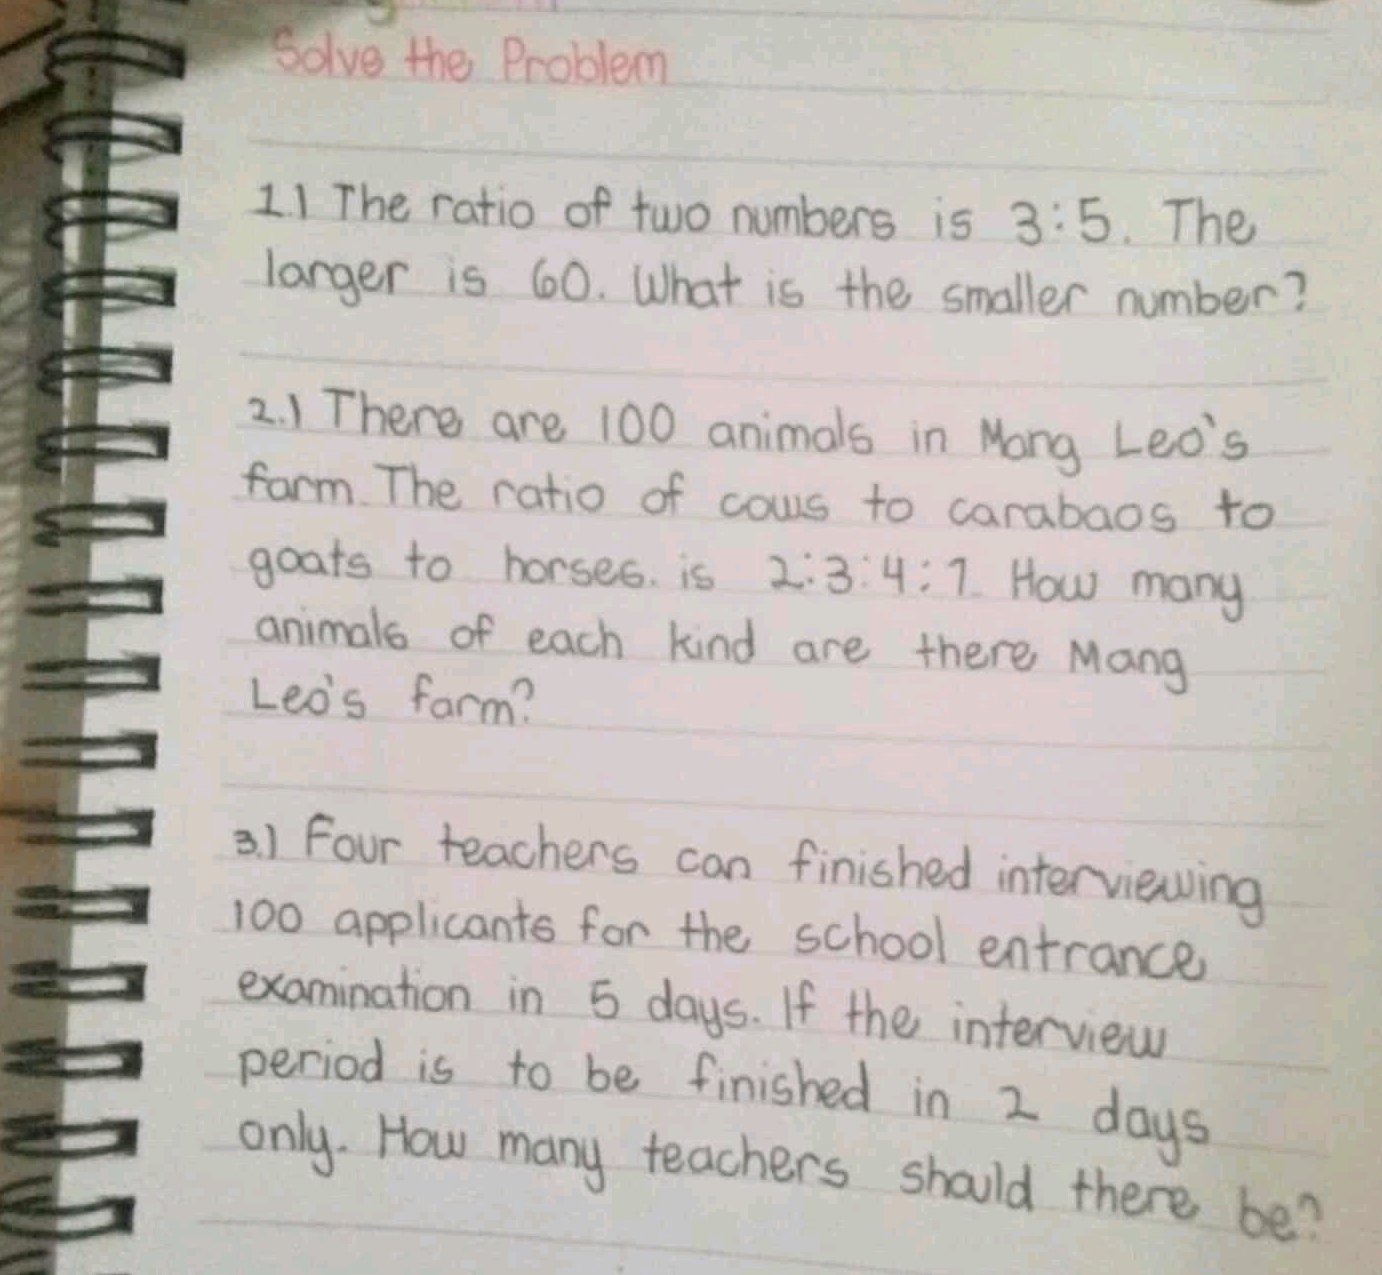 Solve the Problem
1.) The ratio of two numbers is 3:5. The
larger is 60. What is the smaller number?
2.) There are 100 animals in Mang Leo's
farm. The ratio of cows to carabaos to
goats to horses. is 2:3:4:1. How many
animals of each kind are there Mang
Leo's farm?
3.) Four teachers can finished interviewing
100 applicants for the school entrance
examination in 5 days. If the interview
period is to be finished in 2 days
only. How many teachers should there be?